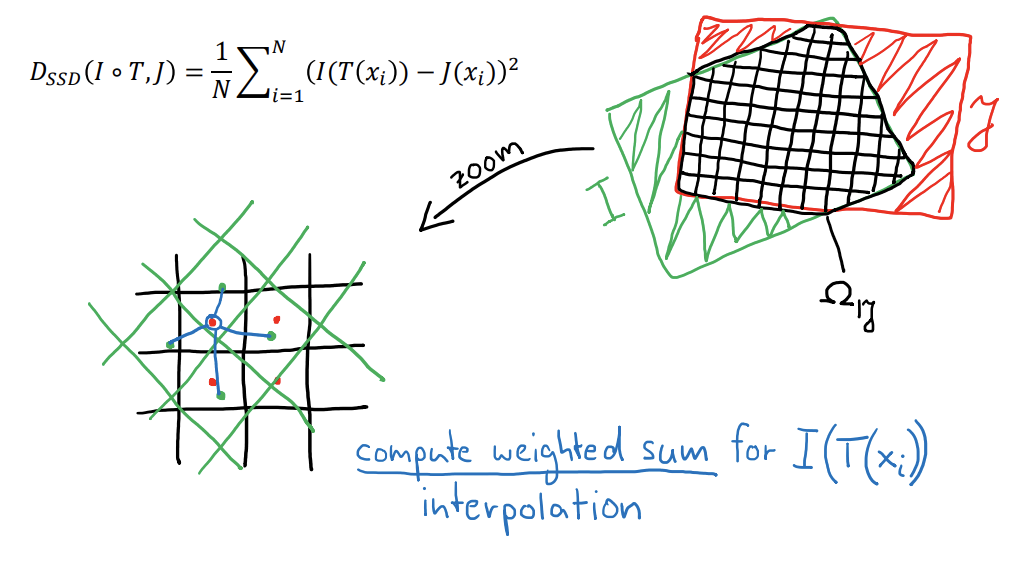 D_SSD(I ∘ T, J) = 1/N ∑_{i=1}^{N} (I(T(x_i)) − J(x_i))²
J
zoom
I
Ω_{IJ}
compute weighted sum for I(T(x_i))
interpolation